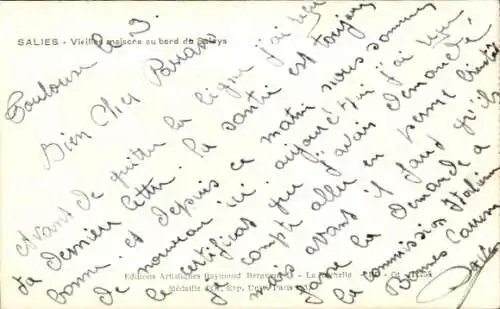 SALIES - Vieilles maisons au bord du Saleys
Toulouse le 3
Bien Cher Parrain
Avant de quitter la ligne j'ai reçu
ta dernière lettre. La santé est toujours
bonne et depuis ce matin nous sommes
de nouveau ici aujourd'hui j'ai reçu
le certificat que j'avais demandé
je compte aller en perme bientôt
mais avant il faut qu'ils
fasse la demande a
la commission Italienne
Editions Artistiques Raymond
Médaille d'Or, Exp. Univ. Paris